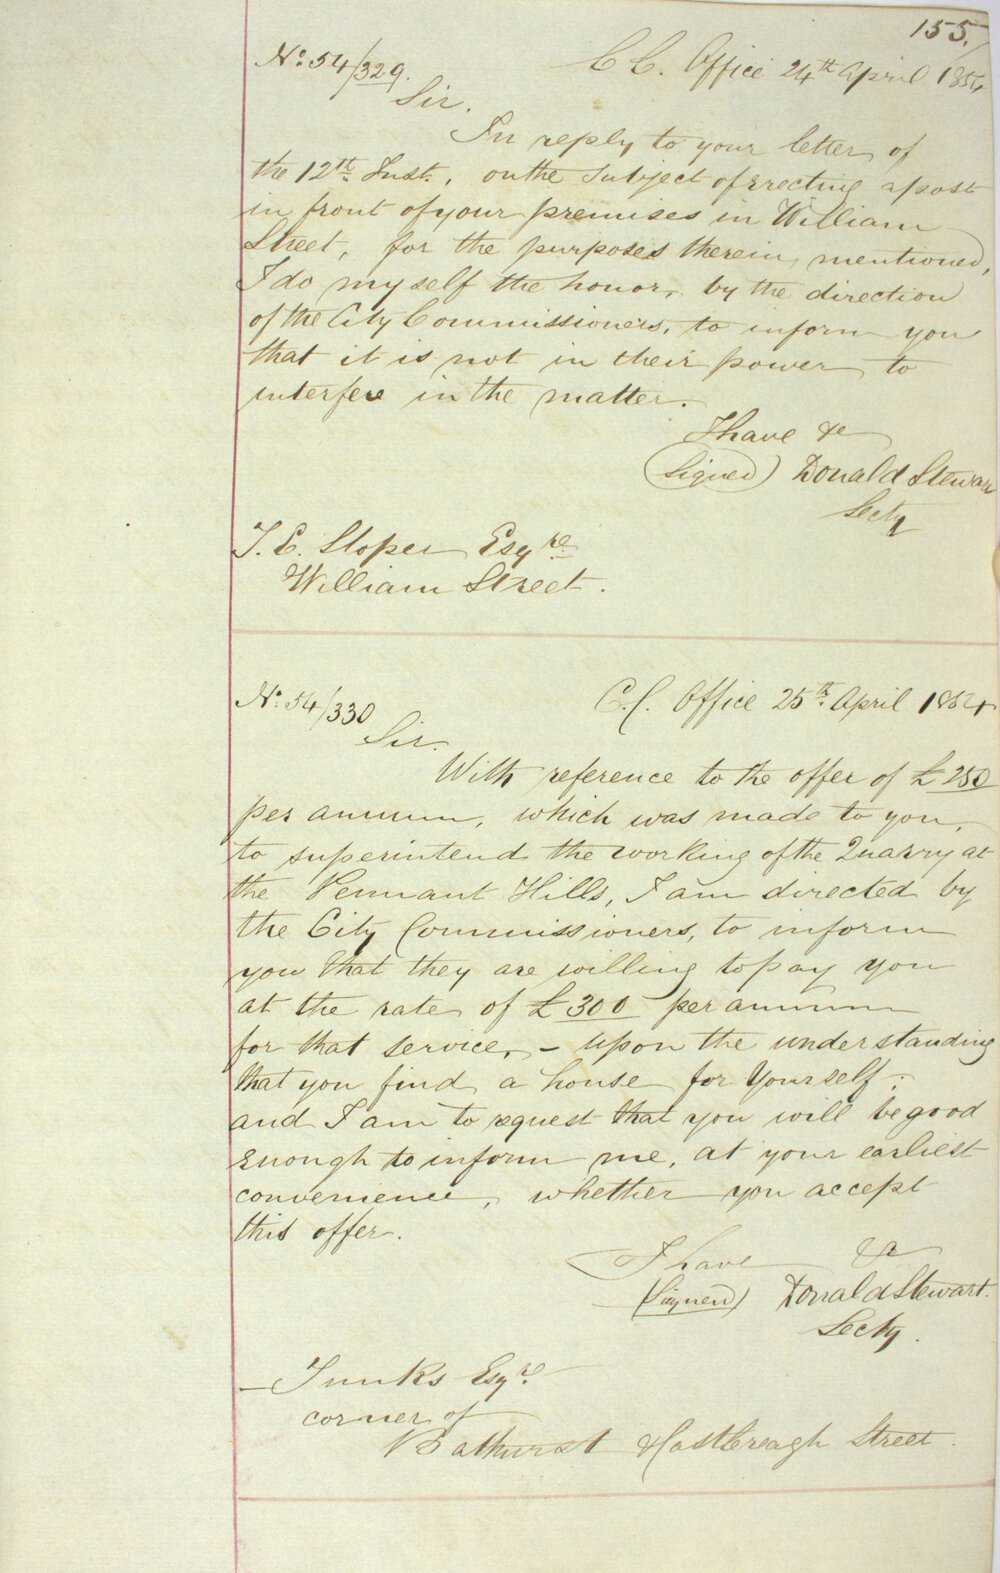 155.
No. 54/329. C C. Office 24th April 1854
Sir.
In reply to your letter of
the 12th Inst., on the subject of erecting a post
in front of your premises in William
Street, for the purposes therein mentioned,
I do myself the honor, by the direction
of the City Commissioners, to inform you
that it is not in their power to
interfere in the matter.
I have &c
(Signed) Donald Stewar
Secty
T. E. Sloper Esqre
William Street.
No. 54/330 C. C. Office 25th April 1854
Sir.
With reference to the offer of £250
per annum, which was made to you,
to superintend the working of the Quarry at
the Pennant Hills, I am directed by
the City Commissioners, to inform
you that they are willing to pay you
at the rate of £300 per annum
for that service, – upon the understanding
that you find a house for Yourself;
and I am to request that you will be good
enough to inform me, at your earliest
convenience, whether you accept
this offer.
I have &c
(Signed) Donald Stewart.
Secty.
— Tunks Esqre
corner of
Bathurst & Castlereagh Street.